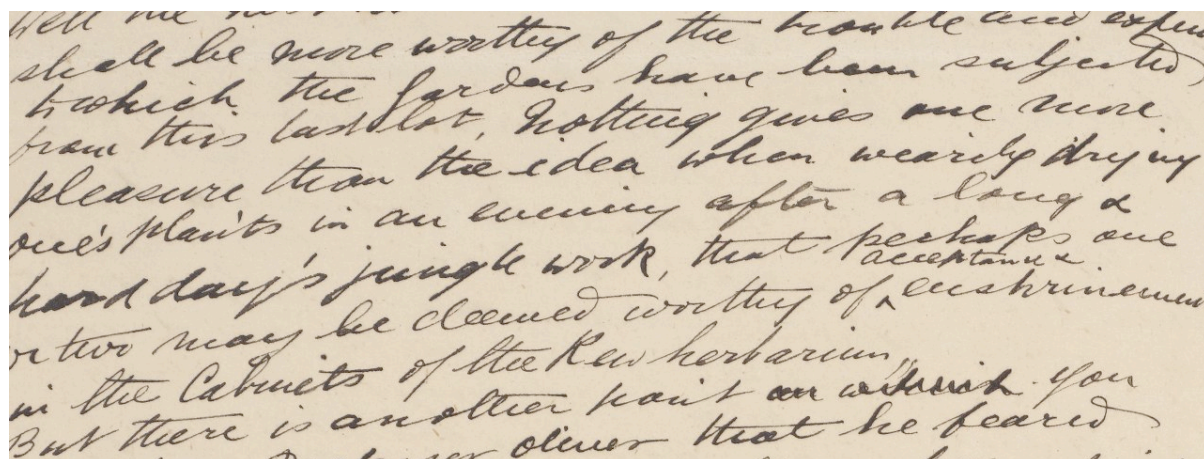 shall be more worthy of the trouble and
to which the Gardens have been subjected
from this last lot, Nothing gives one more
pleasure than the idea when wearily drying
one's plants in an evening after a long &
hard day's jungle work, that perhaps one
or two may be deemed worthy of ^ acceptance & enshrinement
in the Cabinets of the Kew herbarium,
But there is another point on which you
oliver that he feared